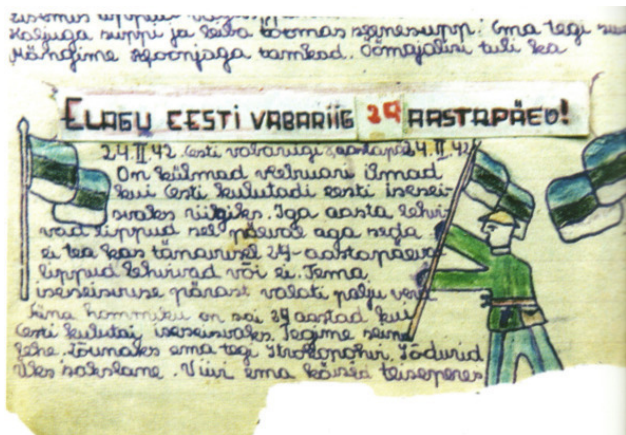 kaljuga suppi ja leiba toomas seenesupp. Ema tegi
Mängime Hoonjaga tamkad. Öömajalisi tuli ka
ELAGU EESTI VABARIIG 24 AASTAPÄEV!
24.II.42. Eesti vabariigi aastapäe 24.II.42
On külmad vebruari ilmad
kui Eesti kulutadi eesti isesei-
svaks riigiks. Iga aasta lehvi-
vad lippud sel päeval aga seda
ei tea kas tämavusel 24-aastapäeva
lippud lehvivad või ei. Tema
iseseisvuse pärast valati palju verd
hommiku on sai 24 aastad kui
Eesti kulutaj iseseisvaks. Tegime seina
lehe. Lõunaks ema tegi Sõdurid
üks sakslane. Viivi ema käisid teiseperes